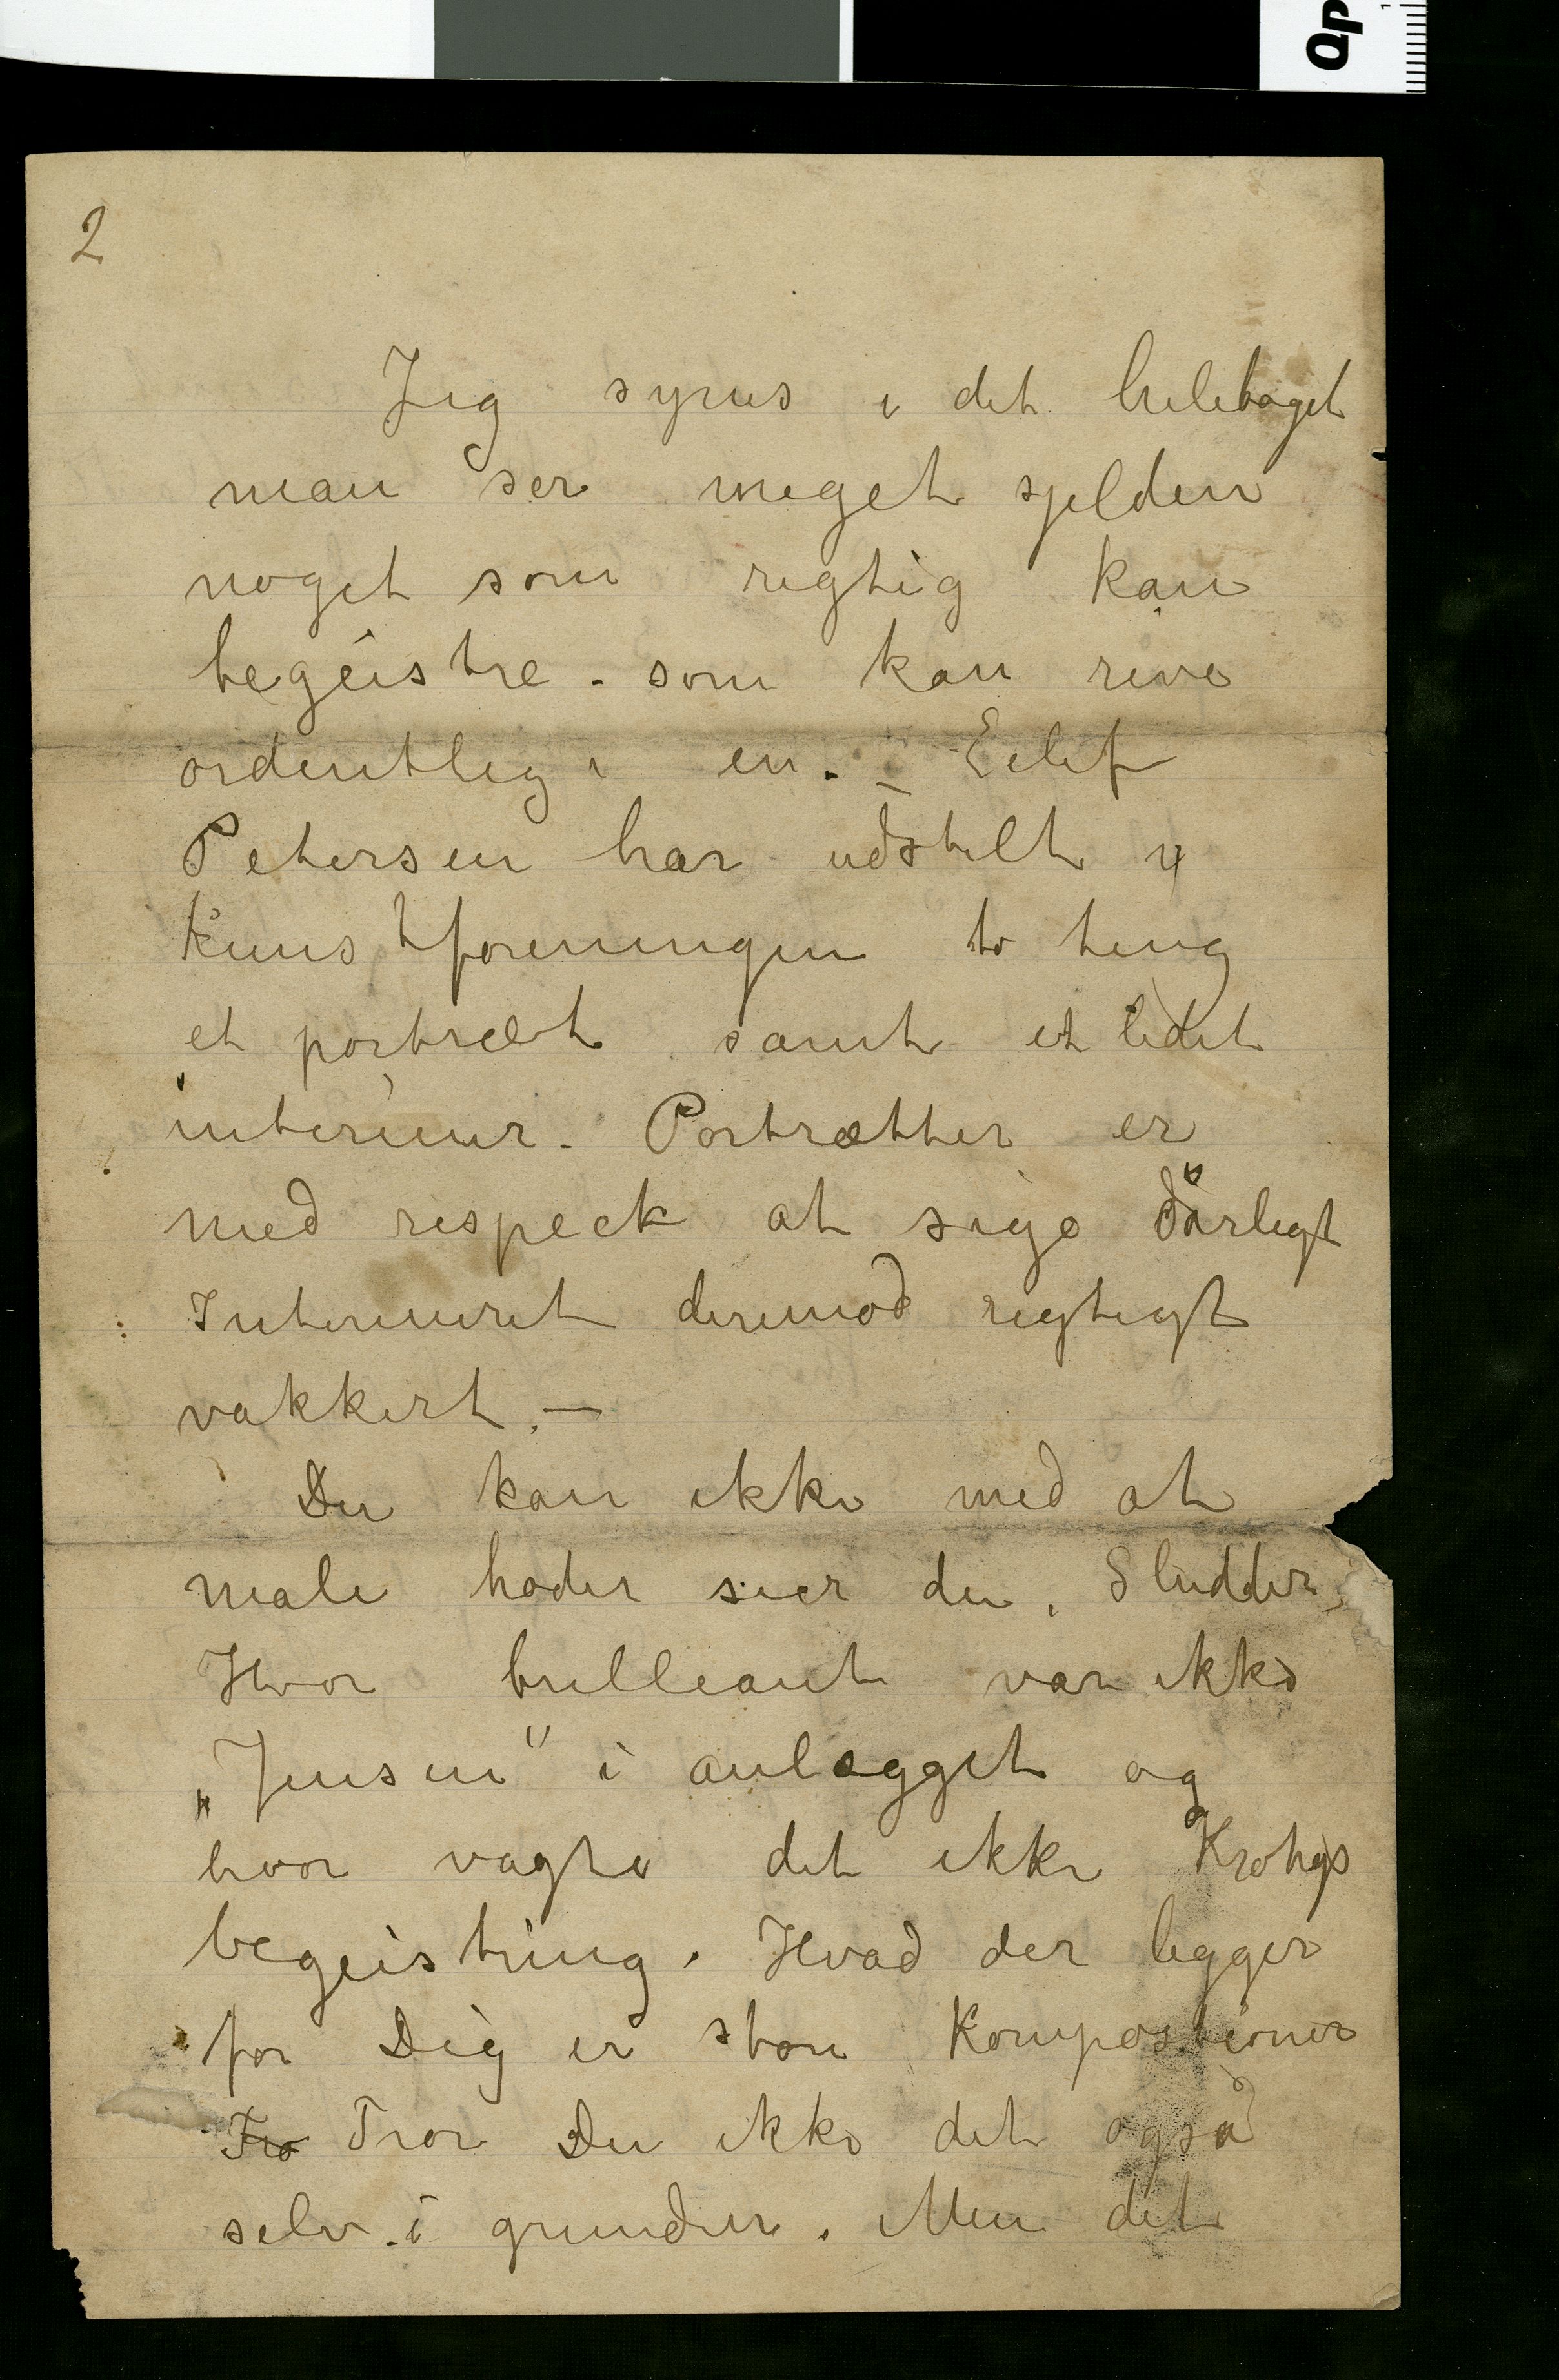 Qp
1
2
Jeg synes i det heletaget
man ser meget sjelden
noget som rigtig kan
begeistre. som kan rive
ordentlig i en. – Eilif
Petersen har udstilt i
Kunstforeningen to ting
et portræt samt et lidet
interieur. Portrætter er
med respeck at sige dårligt
Interieuret derimod rigtigt
vakkert. –
Du kan ikke med at
male hoder sier du. Sludder,
Hvor brilleant var ikke
„Jensen" i anlægget og
hvor vagte det ikke Krohgs
begeistring. Hvad der ligger
for Dig er store Kompostioner
Tro Tror Du ikke det også
selv i grunden. Men det